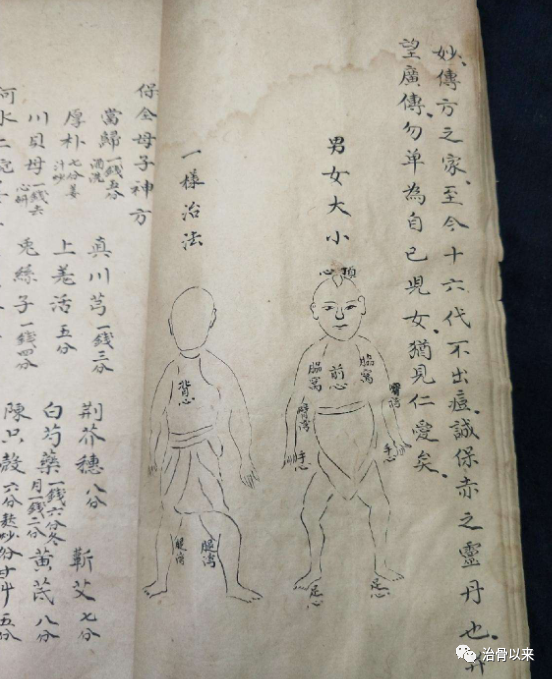 妙傳方之家至今十六代不出痘誠保赤之靈丹也
望廣傳勿单為自己児女猶見仁愛矣
男女大小
頂心
脇窩
前心
脇窩
臂湾
臂湾
手心
手心
足心
足心
一樣治法
背心
腿湾
腿湾
保全母子神方
當歸一錢五分酒洗 真川芎一錢三分 荆芥穗八分 靳艾七分
厚朴七分姜汁炒 上羌活五分 白芍藥一錢六分冬月一錢二分 黄芪八分
川贝母一錢去心研 兎絲子一錢四分 陳只殼六分麸炒 甘艸五分
河水二
治骨以来